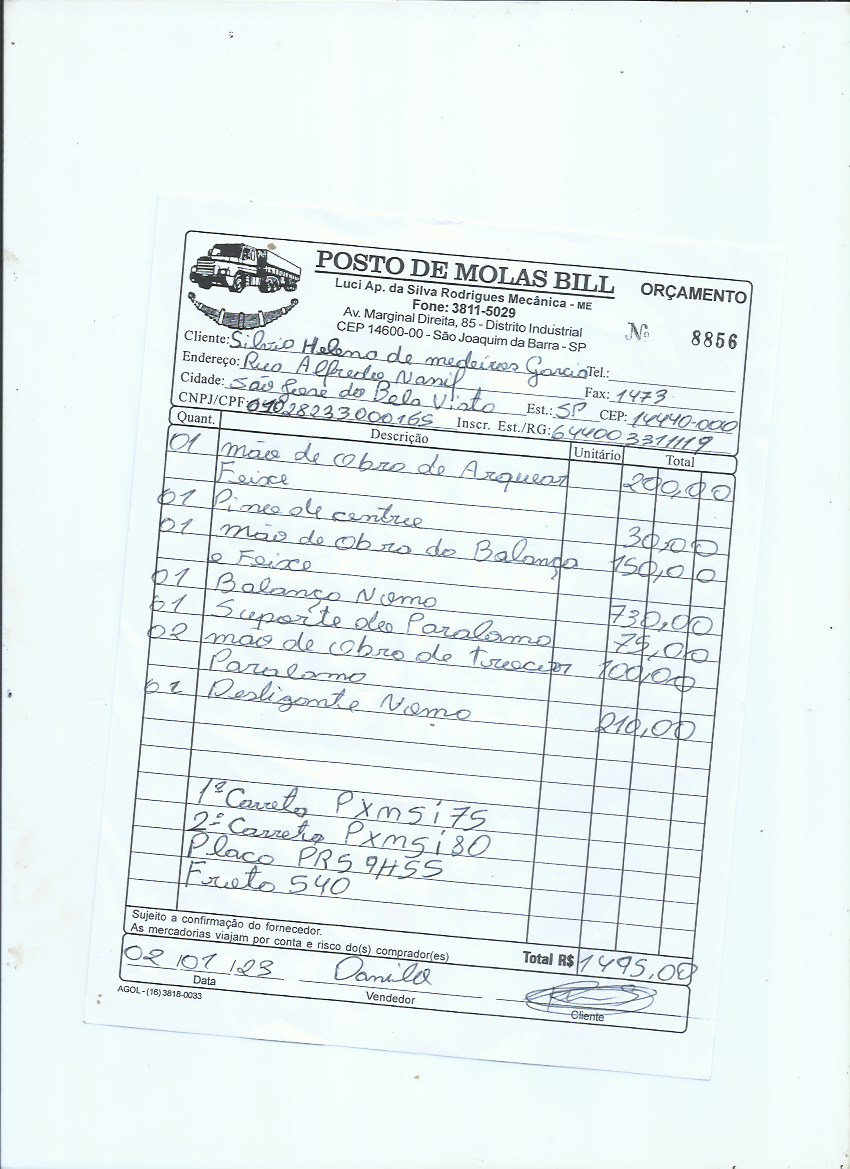 POSTO DE MOLAS BILL
ORÇAMENTO
Luci Ap. da Silva Rodrigues Mecânica - ME
Fone: 3811-5029
Av. Marginal Direita, 85 - Distrito Industrial
CEP 14600-00 - São Joaquim da Barra - SP
Nº 8856
Cliente: Silvio Heleno de medeiros Garcia Tel.:
Endereço: Rua Alfredo Fax: 1473
Cidade: São José da Bela Vista Est.: SP CEP: 14440-000
CNPJ/CPF: Inscr. Est./RG: 644003311119
Quant. Descrição Unitário Total
01 mão de obra de Arquear
Feixe 200,00
01 Pino de centro 30,00
01 mão de obra do Balança 150,00
e Feixe
01 Balança Nomo 730,00
01 Suporte do Paralama 75,00
02 mão de obra de trocar 100,00
Paralama
01 Deslizante Nomo 210,00
1ª Carreta PXM5i75
2ª Carreta PXM5i80
Placa PRS9H55
Frota 540
Sujeito a confirmação do fornecedor.
As mercadorias viajam por conta e risco do(s) comprador(es)
Total R$ 1495,00
02/01/23 Danilo
Data Vendedor Cliente
AGOL - (16) 3818-0033